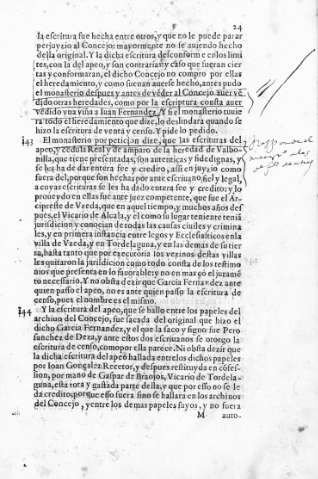 24
la escritura fue hecha entre otros, y que no le puede parar
perjuyzio al Concejo: mayormente no se auiendo hecho
della original. Y la dicha escritura desconforme es en los limi
tes, con la del apeo, y son contrarias: y caso que fueran cier
tas y conformaran, el dicho Concejo no compro por ellas
el heredamiento, y como fueran antes hecho, antes pudo
el monasterio despues y antes de veder al Concejo auer vē
dido otras heredades, como por la escriptura consta auer
vēdido vna viña a Iuan Fernandez. Y si el monasterio tuuie
ra todo el heredamiento que dize, lo deslindara quando se
hizo la escritura de venta y censo. Y pide lo pedido.
143 El monasterio por peticiō dize, que las escrituras del
apeo, y cedula Real y de amparo de la heredad de Valbo-
nilla, que tiene presentadas, son autenticas y fidedignas, y
se les ha de dar entera fee y credito, assi en juyzio como
fuera del, porque son hechas por ante escriuano fiel y legal,
a cuyas escrituras se les ha dado entera fee y credito: y lo
proueydo en ellas fue ante juez competente, que fue el Ar-
cipreste de Vzeda, que en aquel tiempo, y muchos años des
pues, el Vicario de Alcala, y el como su lugar teniente tenia
jurisdicion y conocian de todas las causas ciuiles y crimina
les, y en primera instancia entre legos y Eclesiasticos en la
villa de Vzeda, y en Tordelaguna, y en las demas de su tier
ra, hasta tanto que por executoria los vezinos destas villas
les quitaron la jurisdicion como todo consta de los testimo
nios que presenta en lo fauorable, y no en mas, q̄ō el jurame
to necessario. Y no obsta dezir que Garcia Fernādez ante
quien passo el apeo, no es ante quien passo la escritura de
censo, pues el nombre es el mismo.
144 Y la escritura del apeo, que se hallo entre los papeles del
archiuo del Concejo, fue sacada del original que hizo el
dicho Garcia Fernandez, y el que la saco y signo fue Pero
sanchez de Deza, y ante estos dos escriuanos se otorgo la
escritura de censo, como por ella parece. Ni obsta dezir que
la dicha escritura del apeo hallada entre los dichos papeles
por Ioan Gonçalez Retor, y despues restituyda en cōfes-
sion, por mano de Gaspar de Braojos, Vicario de Tordela-
guna, esta rota y gastada parte della, y que por esso no se le
da credito: porque esso fuera sino se hallara en los archiuos
del Concejo, y entre los demas papeles suyos, y no fuera
M auto-